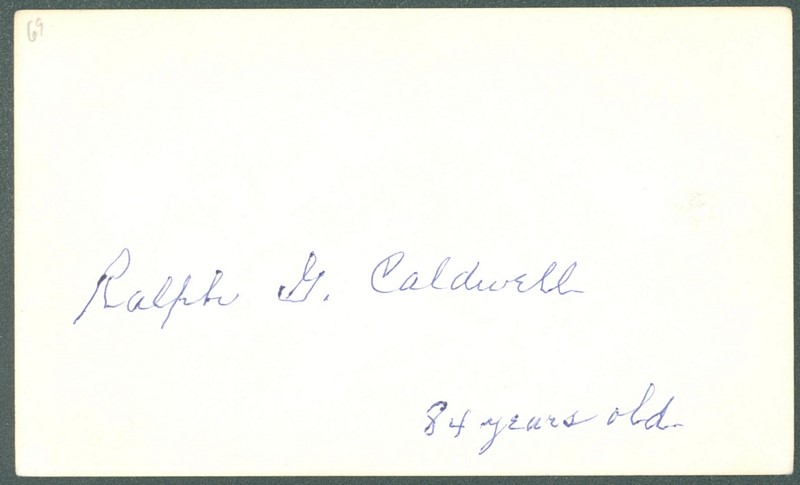 69
Ralph G. Caldwell
84 years old